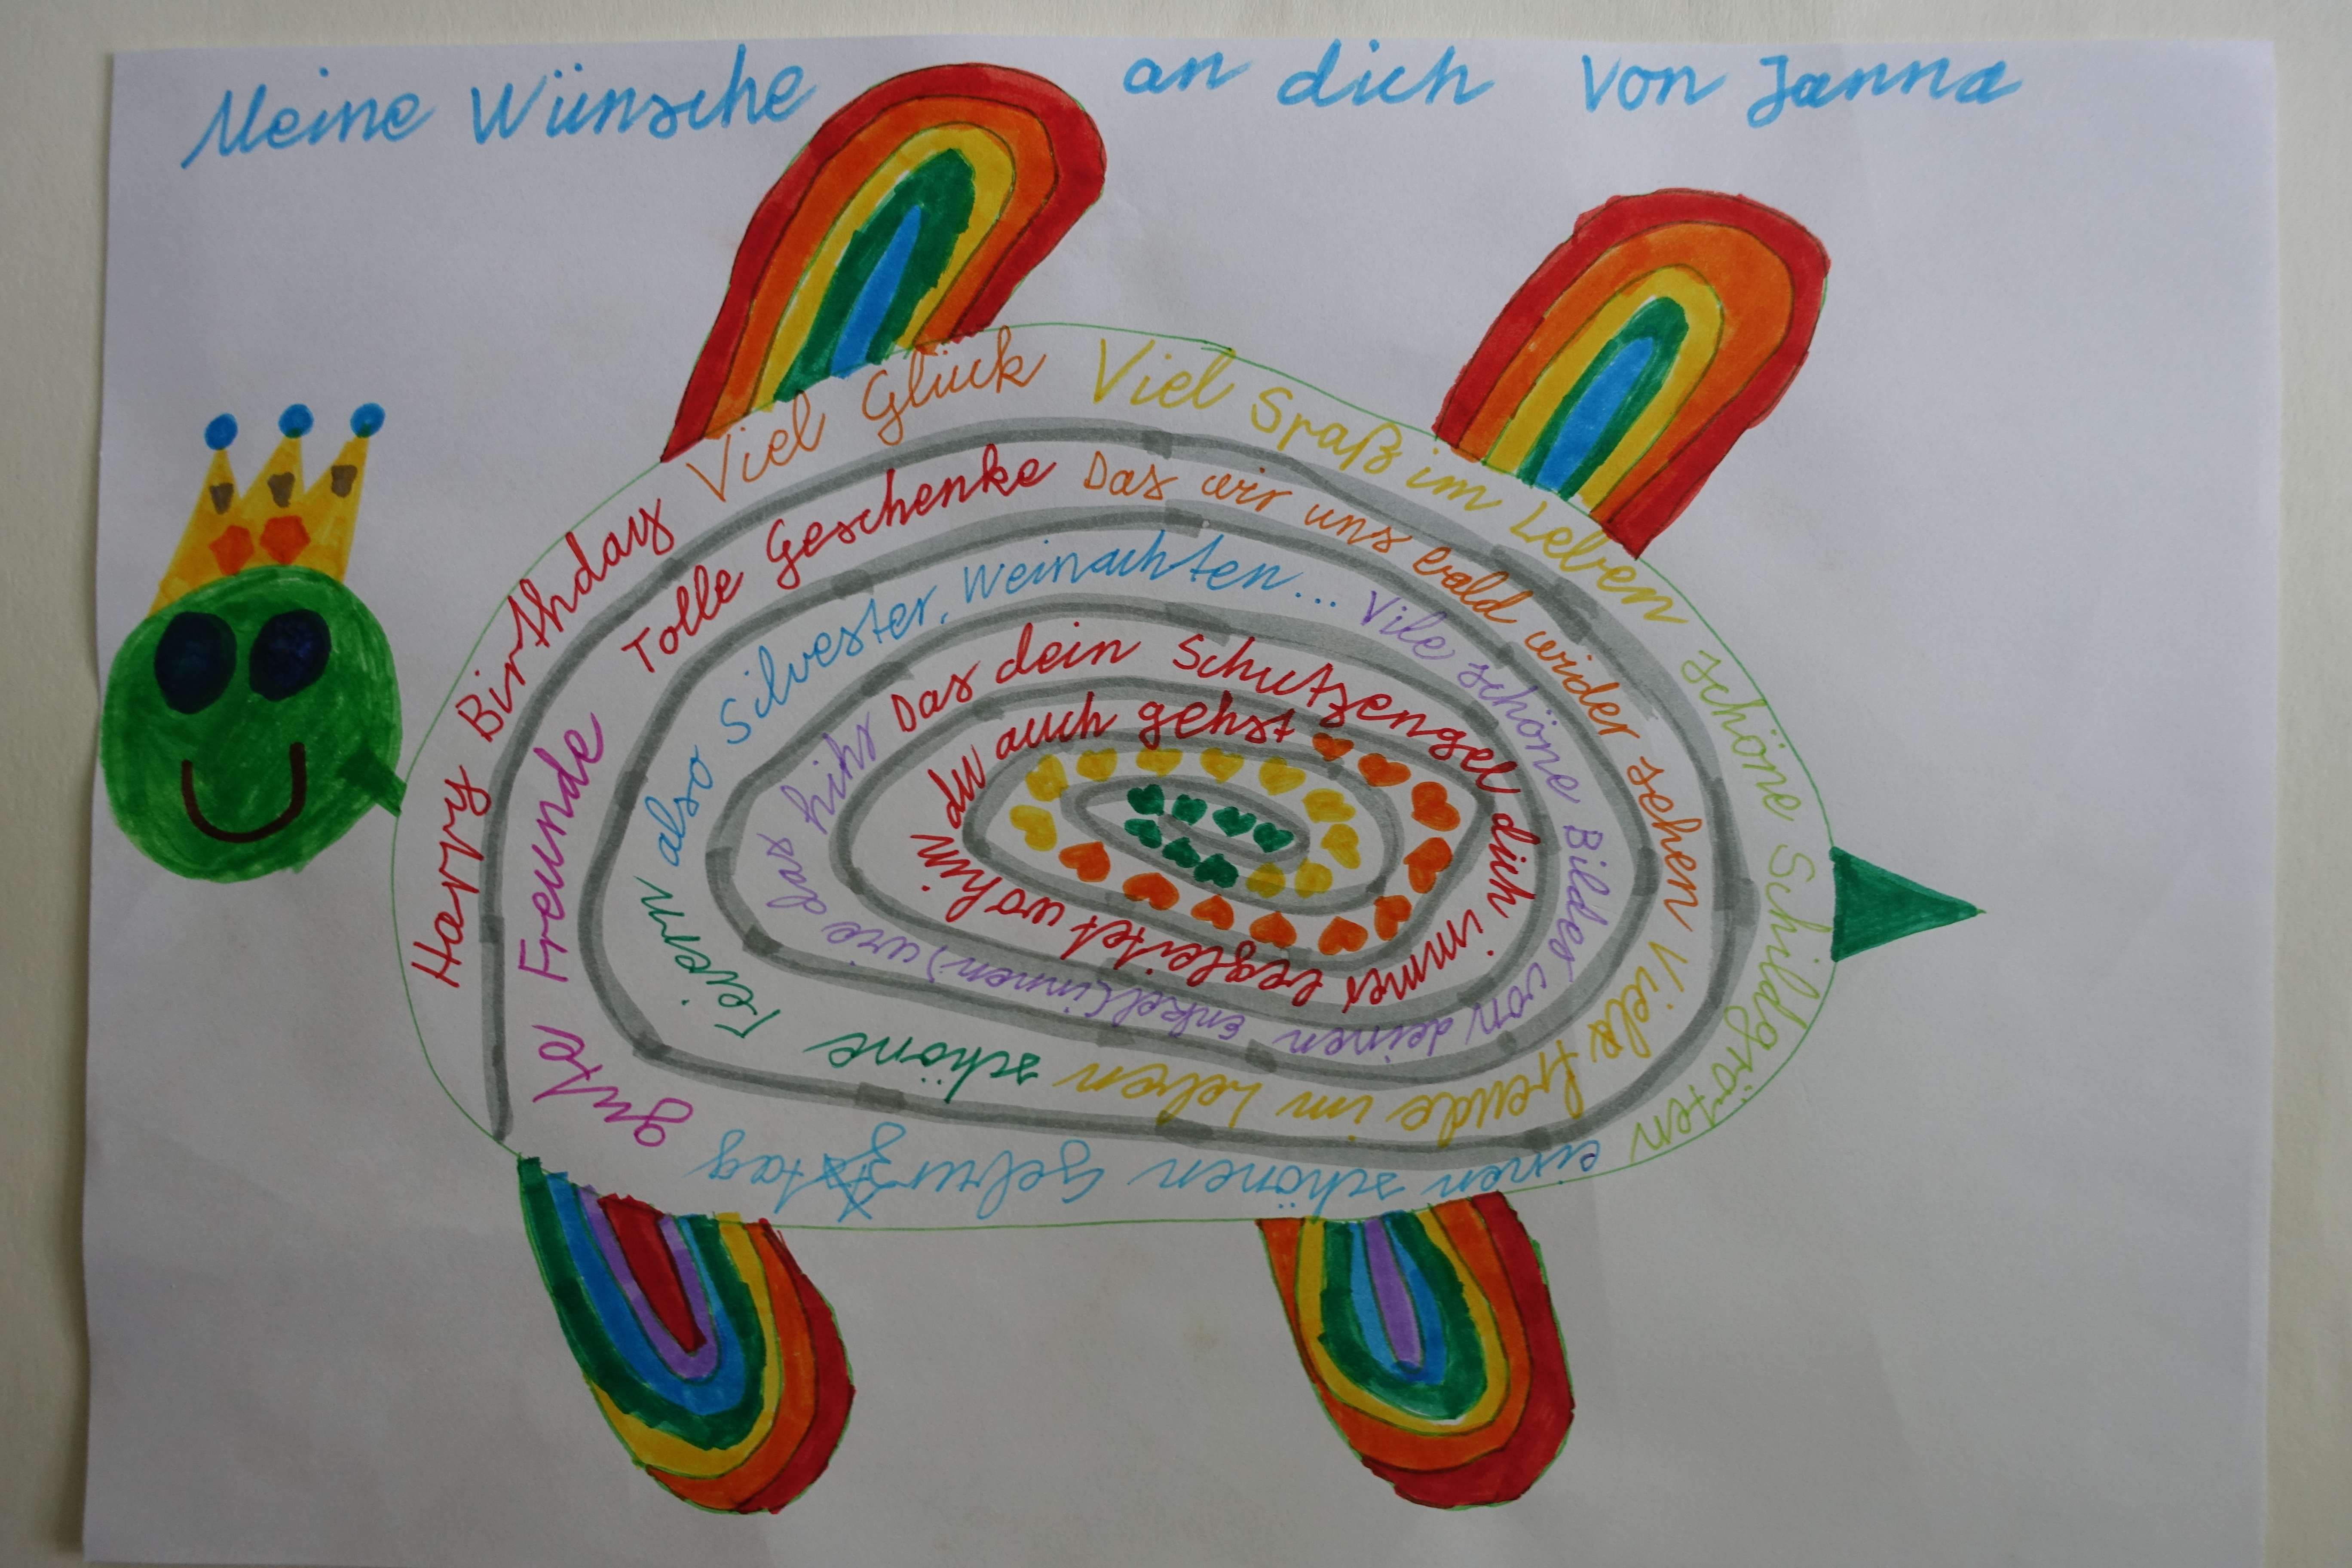 Meine Wünsche an dich von Janna
Happy Birthday
Viel Glück
Viel Spaß im Leben
schöne Schildgröten
einen schönen Geburgstag
gute Freunde
Tolle Geschenke
Das wir uns bald wider sehen
Viele freude im Leben
schöne Feiern also Silvester, Weinachten...
Vile schöne Bilder von deinen enkel(innen) wie das hihr
Das dein Schutzengel dich immer begleitet wohin du auch gehst